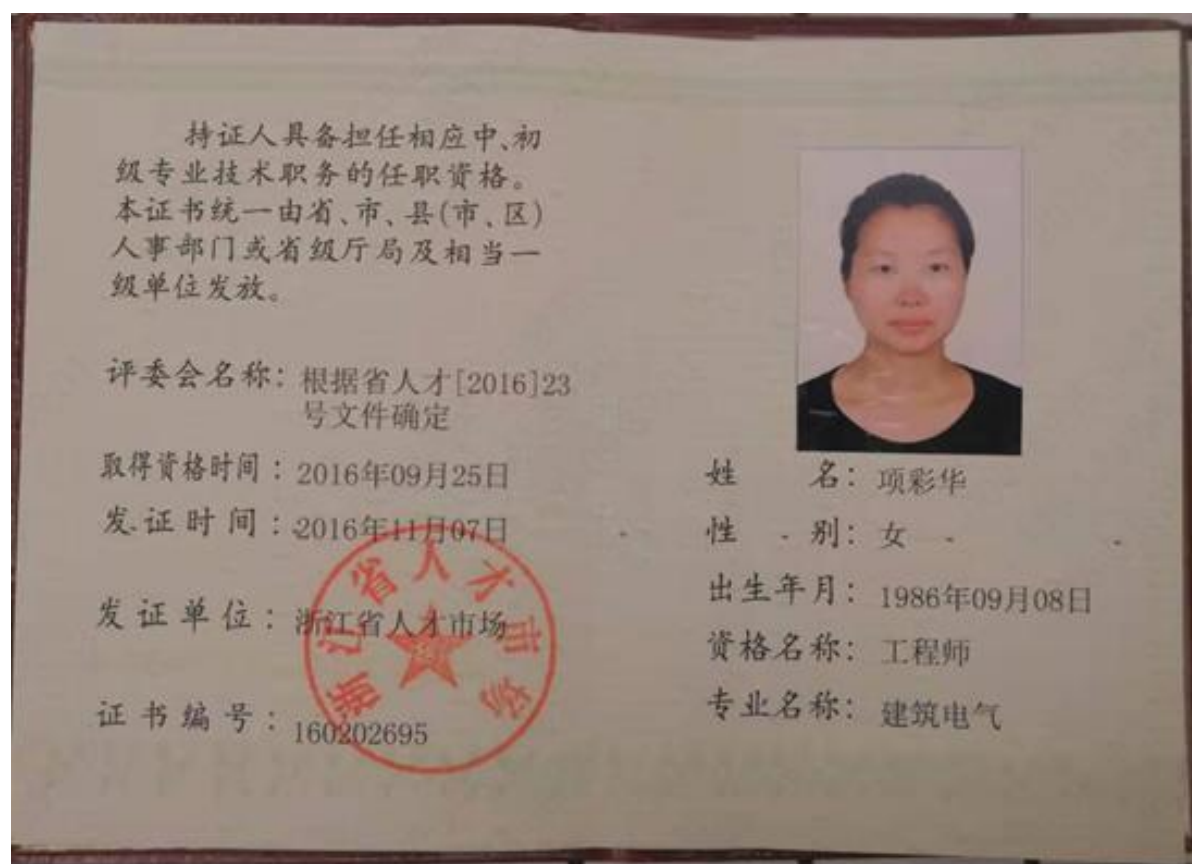 持证人具备担任相应中、初
级专业技术职务的任职资格。
本证书统一由省、市、县(市、区)
人事部门或省级厅局及相当一
级单位发放。
评委会名称：根据省人才[2016]23
号文件确定
取得资格时间：2016年09月25日
发证时间：2016年11月07日
发证单位：浙江省人才市场
证书编号：160202695
浙江省人才市场
姓名：项彩华
性别：女
出生年月：1986年09月08日
资格名称：工程师
专业名称：建筑电气